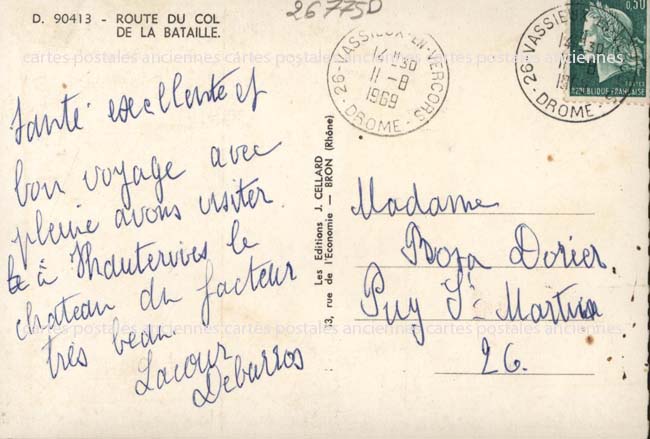 D. 90413 - ROUTE DU COL
DE LA BATAILLE.
26 775D
26 - VASSIEUX-EN-VERCORS
14 H 30
11 - 8
1969
DROME
26 - VASSIEUX
14 H 30
11 - 8
19
DROME
0,30
REPUBLIQUE FRANÇAISE
Santé excellente et
bon voyage avec
pleine avons visiter
à Hauterives le
chateau du facteur
très beau
Lacour
Debarros
Les Editions J. CELLARD
13, rue de l'Economie — BRON (Rhône)
Madame
Dorier
Puy St Martin
26.
cartes postales anciennes cartes postales anciennes cartes postales anciennes
cartes postales anciennes cartes postales anciennes cartes postales anciennes